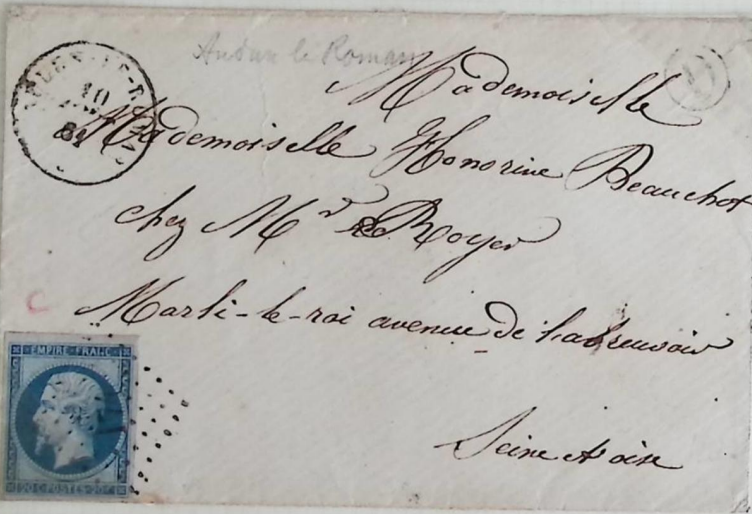 Audun le Roman
Mademoiselle
Mademoiselle Honorine Beauchot
chez Mr Royer
Marli-le-roi avenue de l'abreuvoir
Seine et oise
AUDUN-LE-ROMAN
10
61
D
EMPIRE FRANC
20 C POSTES 20 C